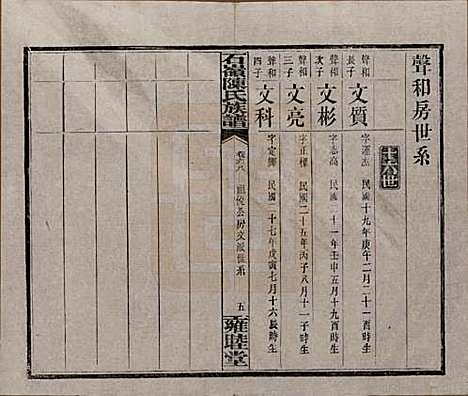 聲和房世系
十六世
聲和長子
文質
字運杰 民國十九年庚午二月二十一酉時生
聲和次子
文彬
字志高 民國二十一年壬申五月十九酉時生
聲和三子
文亮
字正權 民國二十五年丙子八月十一子時生
聲和四子
文科
字定卿 民國二十七年戊寅七月十六辰時生
石嶺陳氏族譜
卷六八 祖俊公房文派世系
五
雍睦堂